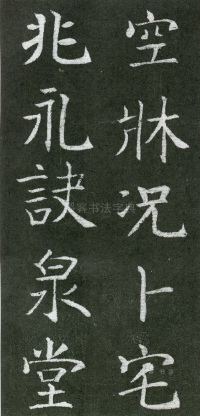 空牀況卜宅
兆永訣泉堂
书法字典